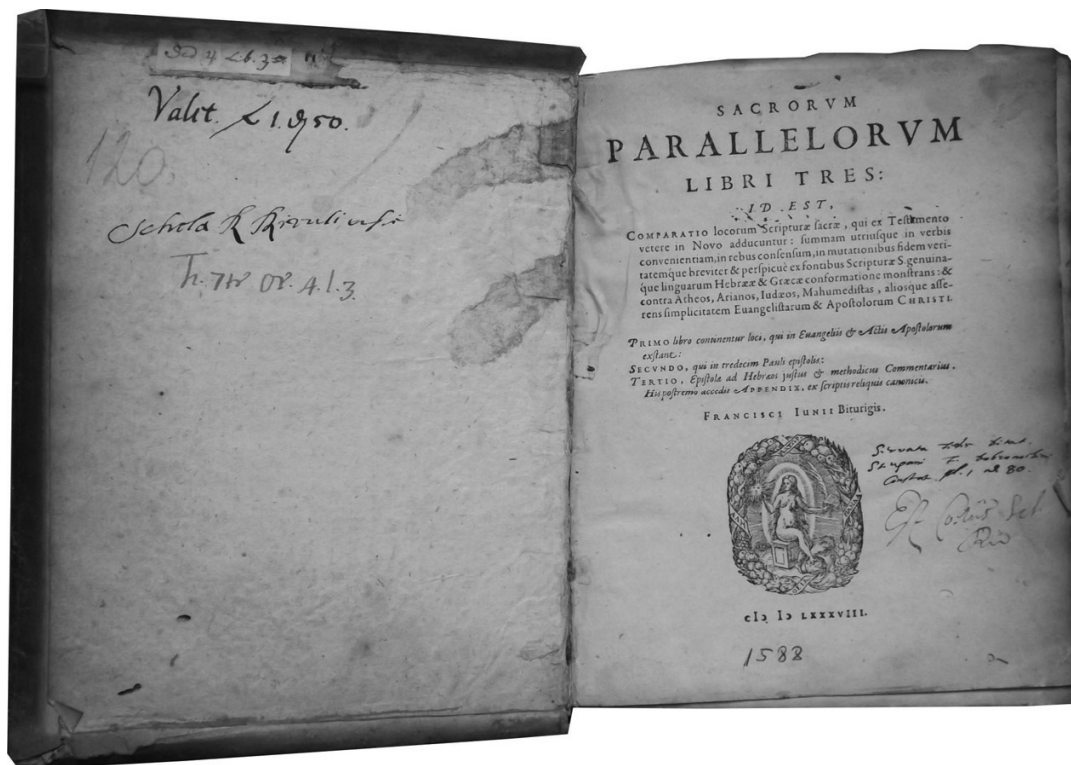 Valet. £ 1. d 50.
120.
Schola R Rivuliensis
A. 1. 3.
SACRORVM
PARALLELORVM
LIBRI TRES:
ID EST,
COMPARATIO locorum Scripturæ sacræ, qui ex Testamento
vetere in Novo adducuntur: summam utriusque in verbis
convenientiam, in rebus consensum, in mutationibus fidem veri-
tatemque breviter & perspicuè ex fontibus Scripturæ S. genuina-
que linguarum Hebrææ & Græcæ conformatione monstrans: &
contra Atheos, Arianos, Iudæos, Mahumedistas, aliosque asse-
rens simplicitatem Euangelistarum & Apostolorum CHRISTI.
PRIMO libro continentur loci, qui in Euangeliis & Actis Apostolorum
exstant:
SECVNDO, qui in tredecim Pauli epistolis:
TERTIO, Epistolæ ad Hebræos justus & methodicus Commentarius.
His postremo accedit APPENDIX, ex scriptis reliquis canonicis.
FRANCISCI IUNII Biturigis.
cIↄ Iↄ LXXXVIII.
1588